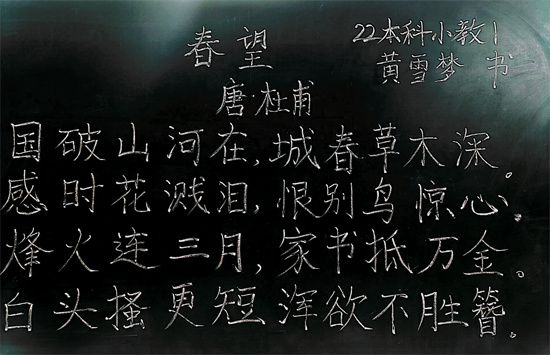 春望
22本科小教1
黄雪梦 书
唐·杜甫
国破山河在,城春草木深。
感时花溅泪,恨别鸟惊心。
烽火连三月,家书抵万金。
白头搔更短,浑欲不胜簪。